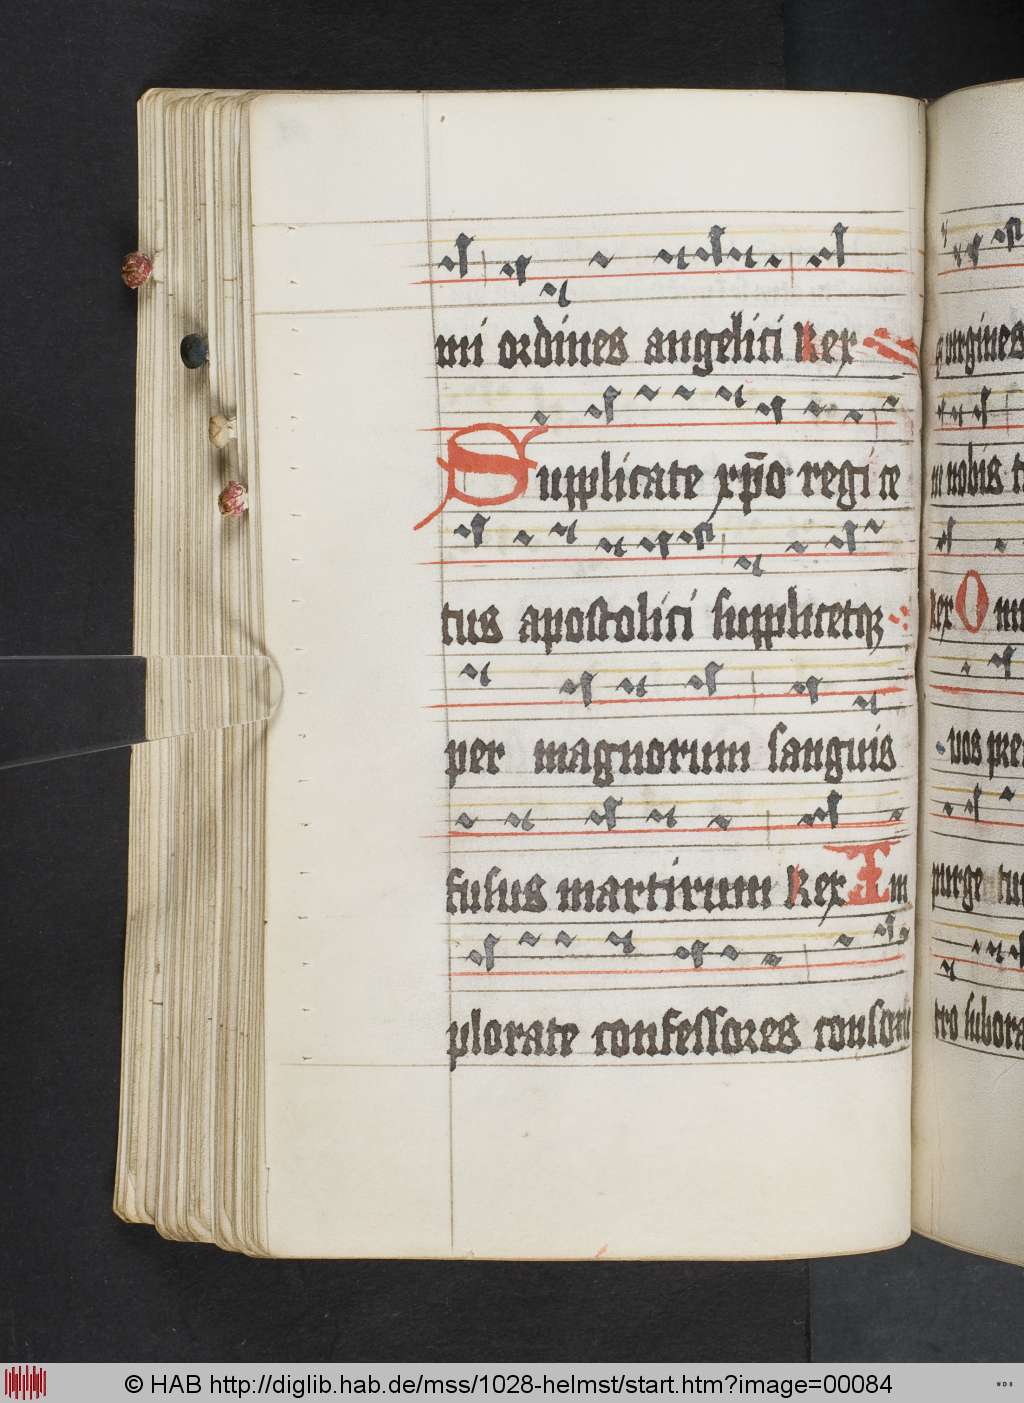 mi ordines angelici Rex
Supplicate xp̄o regi ce
tus apostolici supplicetqꝫ
per magnorum sanguis
fusus martirum Rex Im
plorate confessores consorci
virgines
nobis
Rex O
uos pre
purge tu
tro subora
© HAB http://diglib.hab.de/mss/1028-helmst/start.htm?image=00084